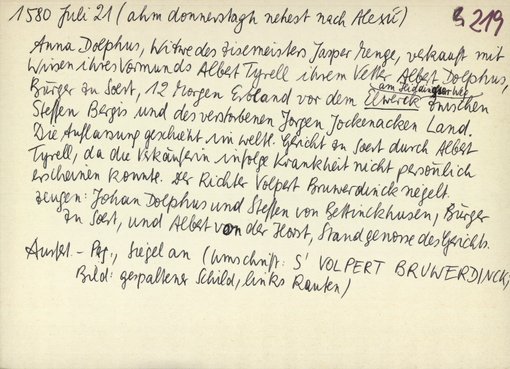 1580 Juli 21 (ahm donnerstagh nehest nach Alexii) § 219
Anna Dolphus, Witwe des Zisemeisters Jasper Menge, verkauft mit
Wissen ihres Vormunds Albert Tyrell ihrem Vetter Albert Dolphus,
Bürger zu Soest, 12 Morgen Erbland vor dem Elwerck zwischen
am
Steffen Bergis und des verstorbenen Jorgen Jockenacken Land.
Die Auflassung geschieht im weltl. Gericht zu Soest durch Albert
Tyrell, da die Verkäuferin infolge Krankheit nicht persönlich
erscheinen konnte. Der Richter Volpert Bruwerdinck siegelt.
Zeugen: Johan Dolphus und Steffen von Bettinckhusen, Bürger
zu Soest, und Albert von der Horst, Standgenosse des Gerichts.
Ausf. - Perg., Siegel an (Umschrift: S' VOLPERT BRUWERDINCK;
Bild: gespaltener Schild, links Rauten)